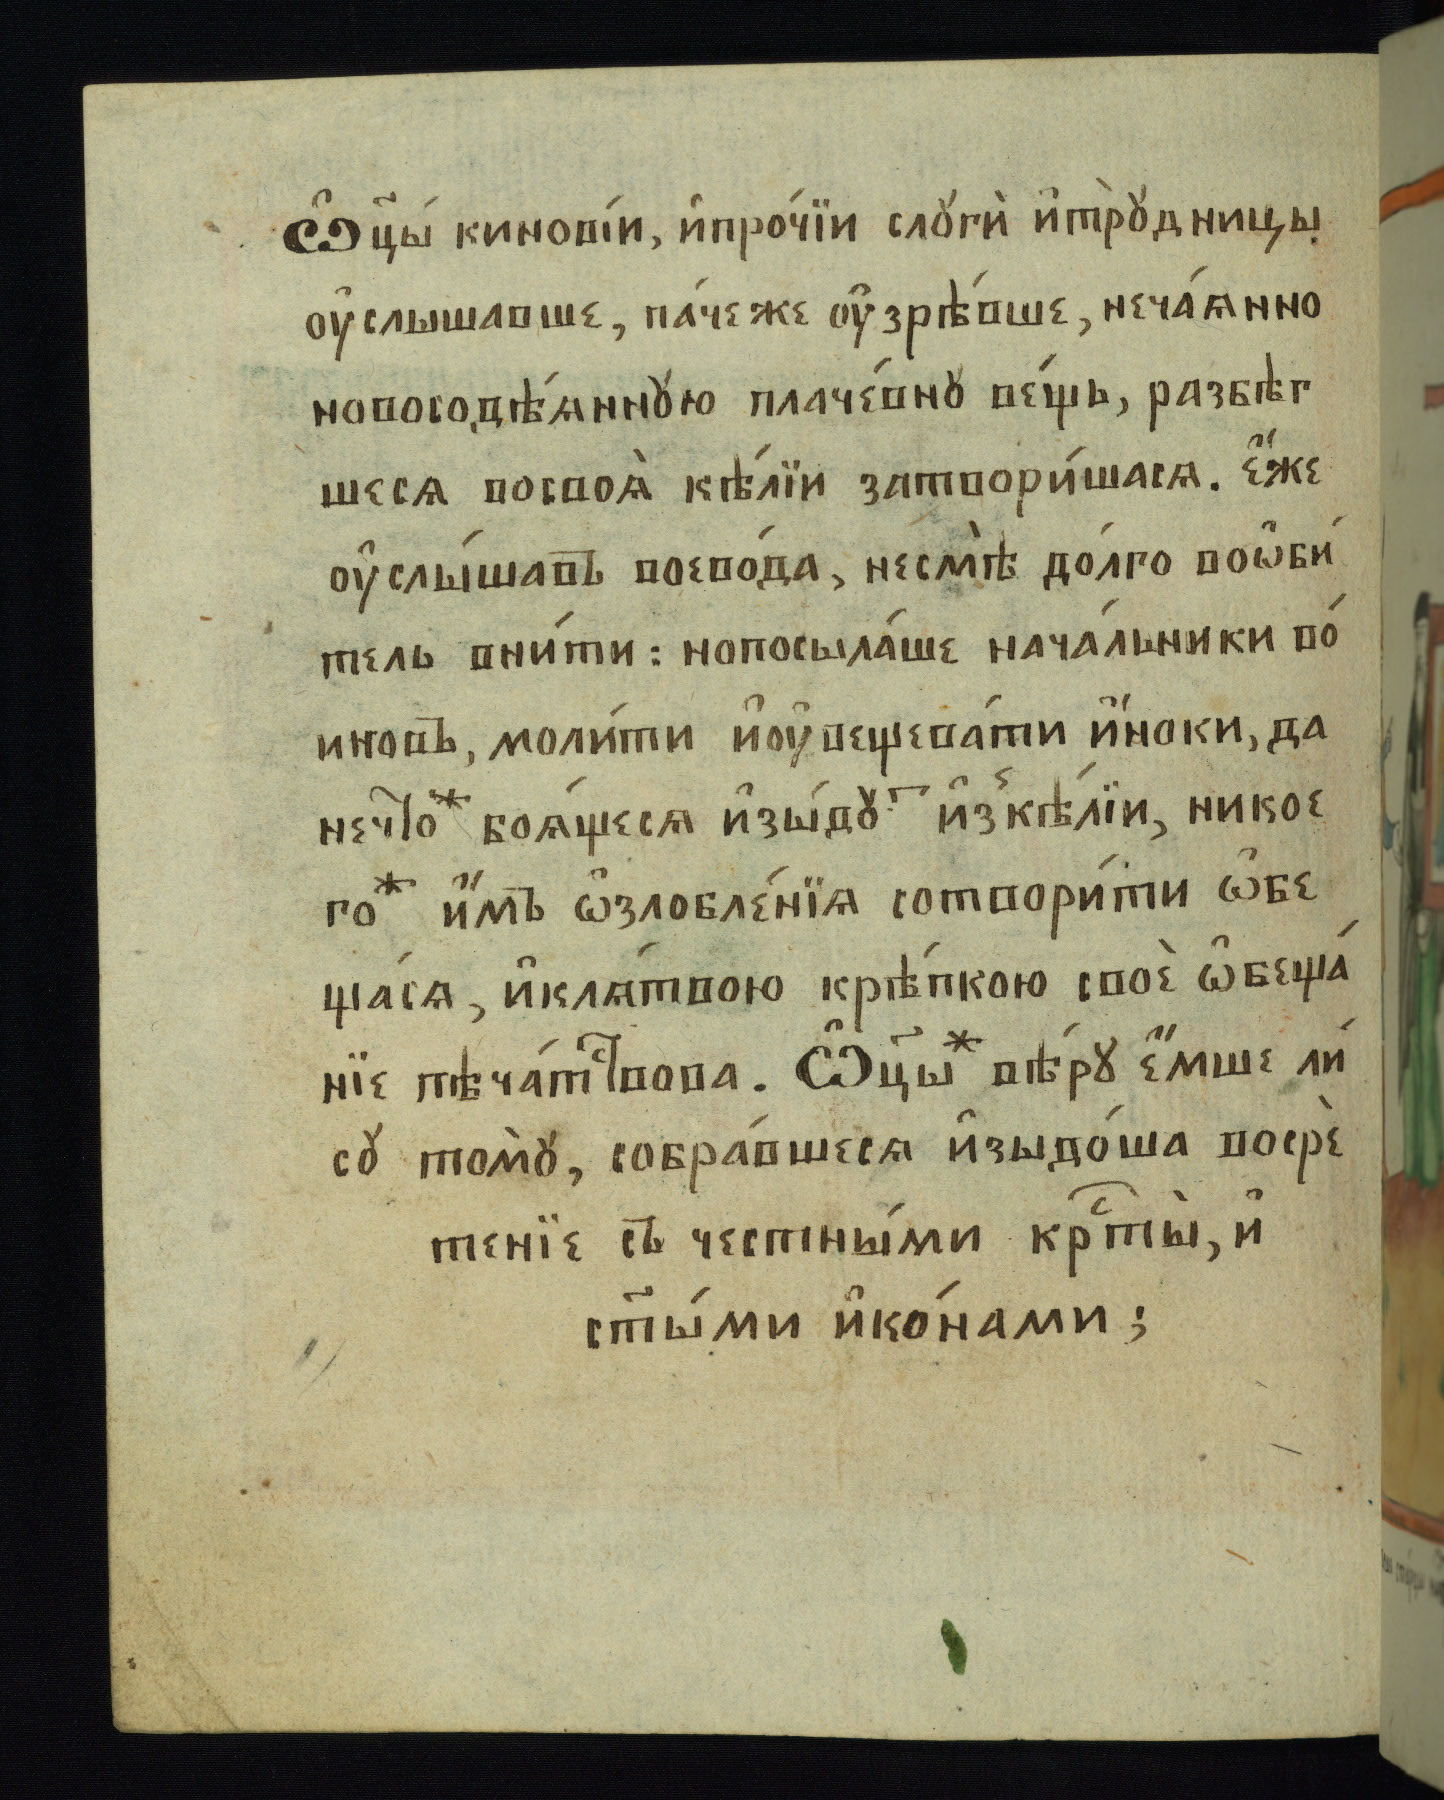 Ѡ҆ц҃ы́ кинові́и, и҆про́чїи слꙋгѝ и҆трꙋ̀дницы
оу҆слышавше, па́чеже оу҆зрѣ́вше, неча́ѧнно
новосодѣ́ѧннꙋю плаче́внꙋ ве́щь, разбѣг
шесѧ восвоѧ̀ кѣ́лїи затвори́шасѧ. є҆́же
оу҆слы́шавъ воево́да, несмѣ̀ до́лго воѡ҆би́
тель вни́ти: нопосыла́ше нача́льники во́
иновъ, моли́ти и҆оу҆вещева́ти и҆́ноки, да
нечⷭ҇тоⷤ боѧ́щесѧ и҆зы́дꙋⷮ и҆зкѣ́лїи, никое
гоⷤ и҆́мъ ѡ҆злобле́нїѧ сотвори́ти ѡ҆бе
ща́сѧ, и҆клѧ́твою крѣ́пкою своѐ ѡ҆беща́
нїе пѣча́тⷭ҇твова. Ѡ҆ц҃ыⷤ вѣ́рꙋ є҆́мше ли́
сꙋ томꙋ̀, собра́вшесѧ и҆зыдо́ша восрѐ
тенїе съ честны́ми крⷭ҇ты̀, и҆
ст҃ы́ми и҆ко́нами;